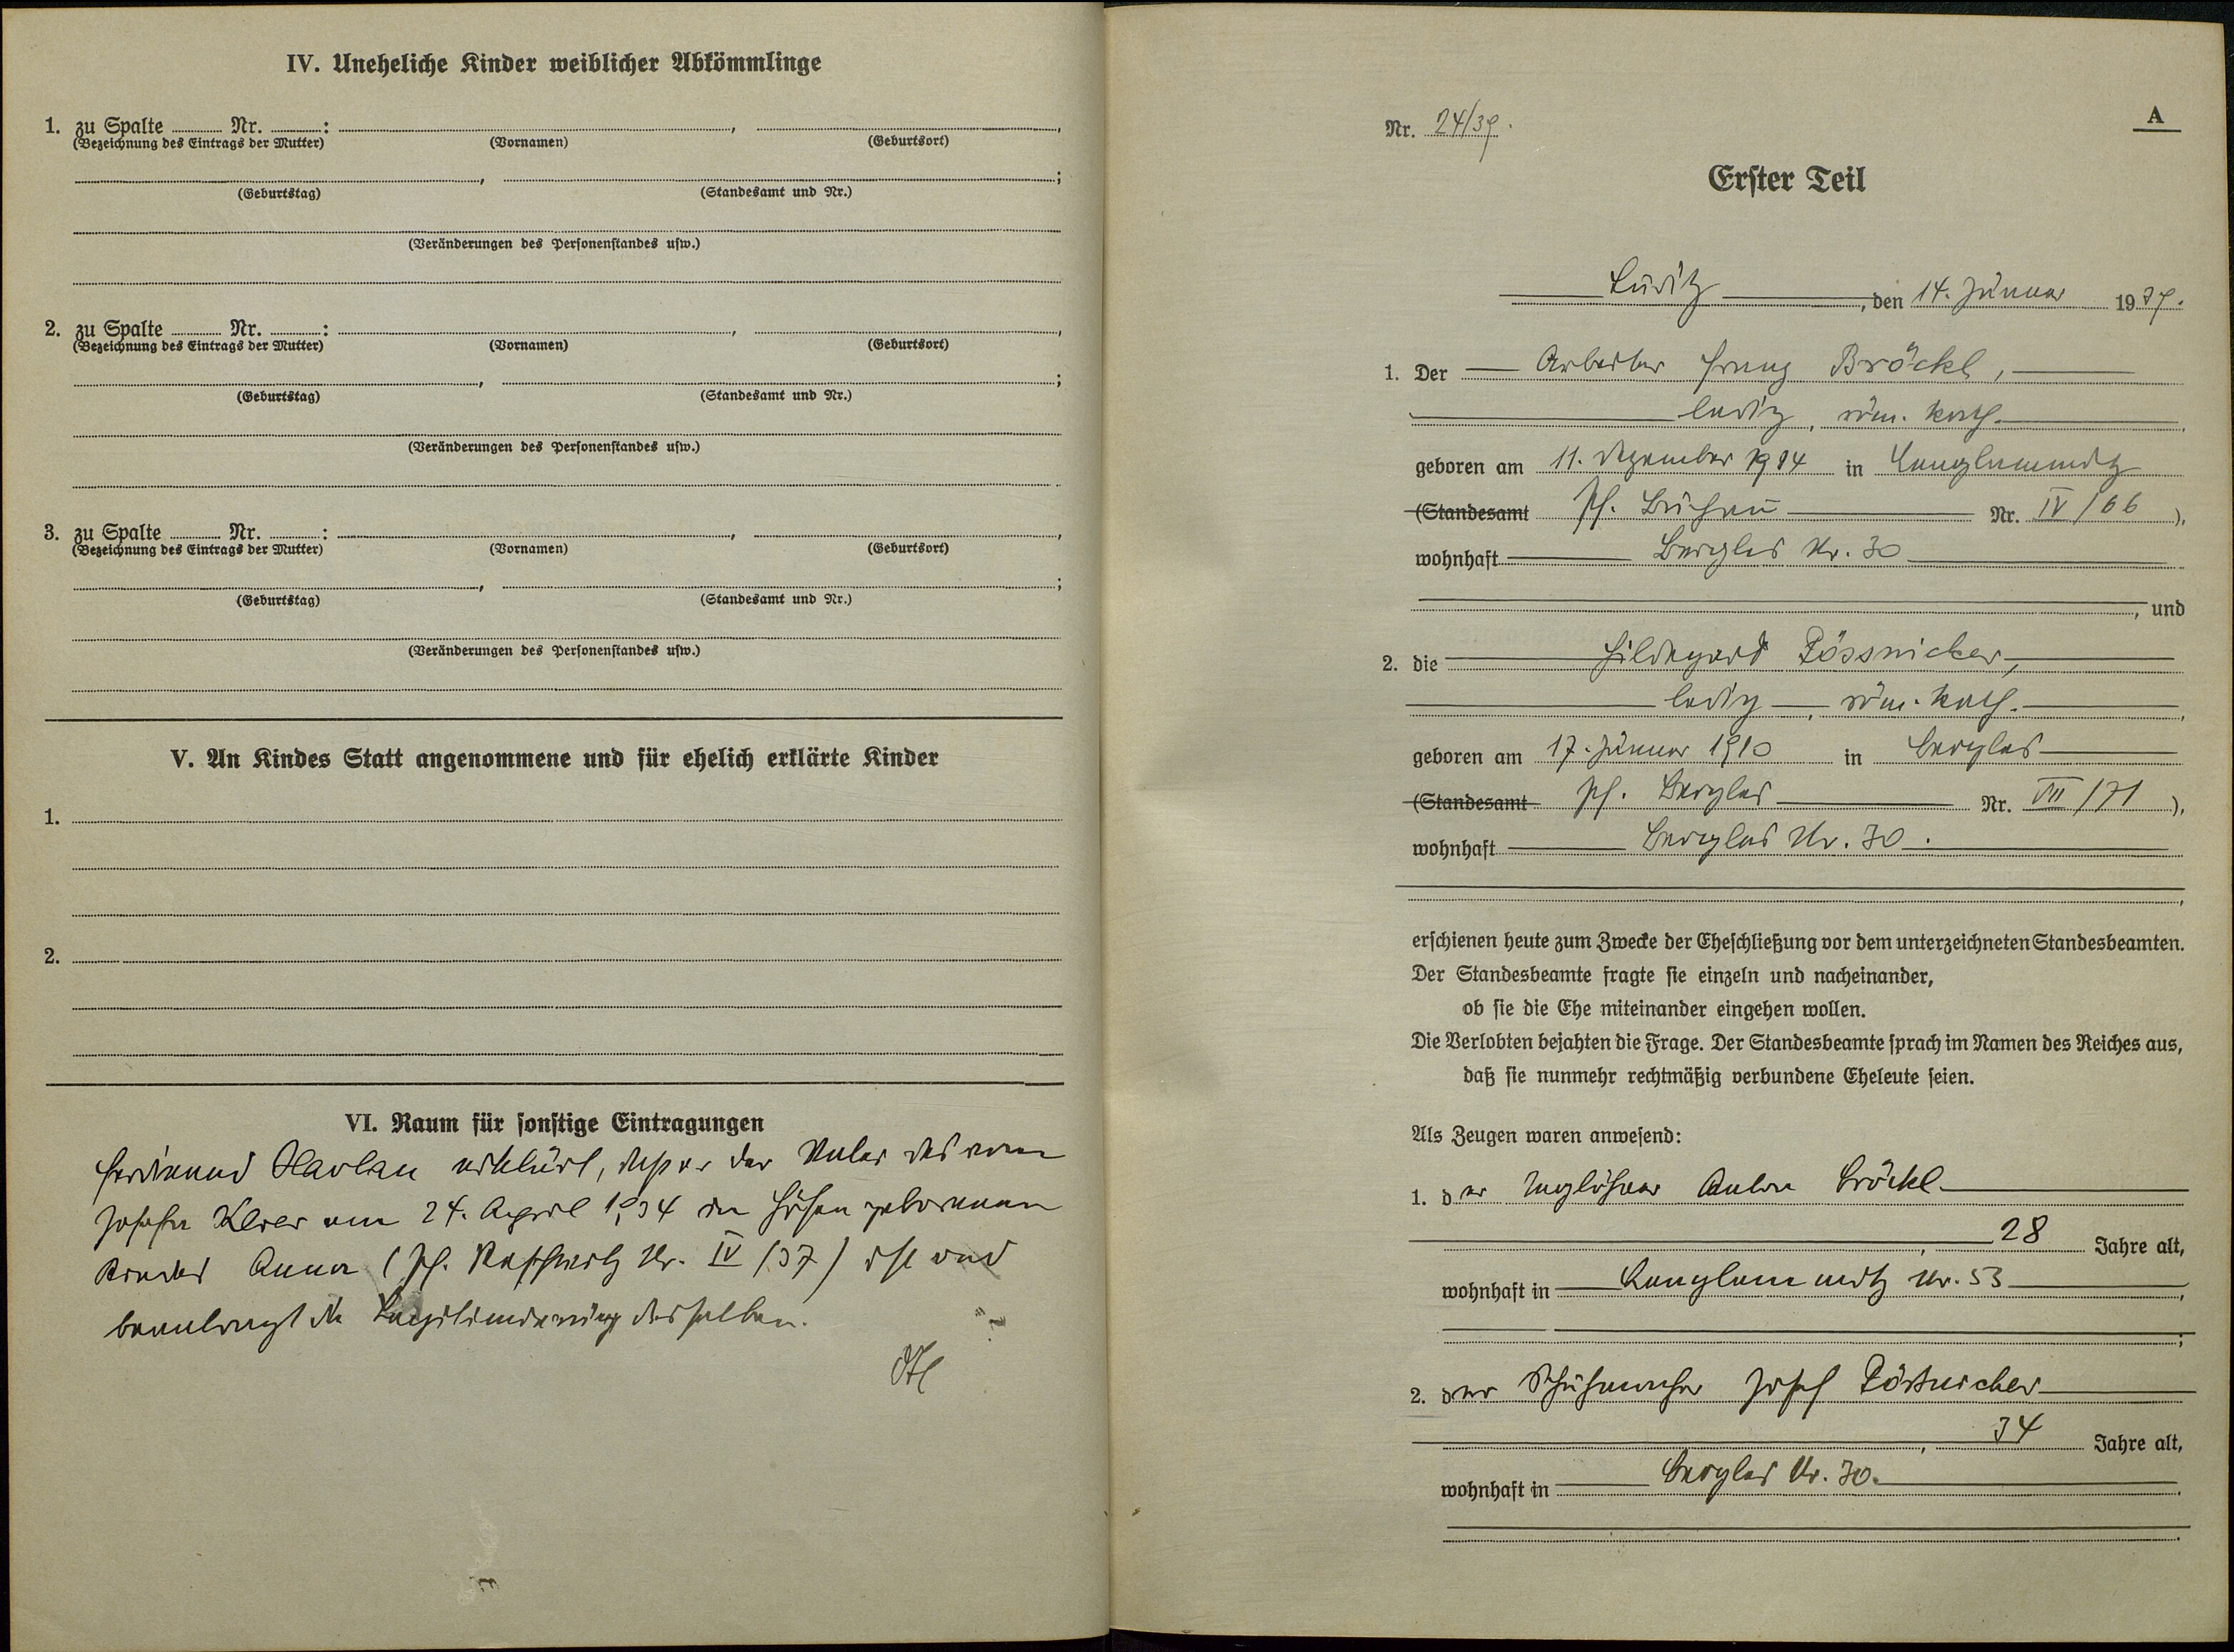 IV. Uneheliche Kinder weiblicher Abkömmlinge
1. zu Spalte ........ Nr. ........: ........, ........,
(Bezeichnung des Eintrags der Mutter) (Vornamen) (Geburtsort)
........, ........;
(Geburtstag) (Standesamt und Nr.)
(Veränderungen des Personenstandes usw.)
2. zu Spalte ........ Nr. ........: ........, ........,
(Bezeichnung des Eintrags der Mutter) (Vornamen) (Geburtsort)
........, ........;
(Geburtstag) (Standesamt und Nr.)
(Veränderungen des Personenstandes usw.)
3. zu Spalte ........ Nr. ........: ........, ........,
(Bezeichnung des Eintrags der Mutter) (Vornamen) (Geburtsort)
........, ........;
(Geburtstag) (Standesamt und Nr.)
(Veränderungen des Personenstandes usw.)
V. An Kindes Statt angenommene und für ehelich erklärte Kinder
1.
2.
VI. Raum für sonstige Eintragungen
Ferdinand erklärt, dass er der Vater des von
Josefa Klier am 24. April 1934 in geborenen
Kindes Anna (Pf. Nr. IV/37) ist und
beantragt die Legitimierung desselben.
A
Nr. 24/39.
Erster Teil
Luditz, den 14. Jänner 1939.
1. Der Arbeiter Franz Bröckl,
ledig, röm. kath.,
geboren am 11. Dezember 1914 in Langlamnitz
(Standesamt Pf. Buchau Nr. IV/66),
wohnhaft Bergles Nr. 30
, und
2. die Hildegard Pössnicker,
ledig, röm. kath.,
geboren am 17. Jänner 1910 in Bergles
(Standesamt Pf. Bergles Nr. VII/71),
wohnhaft Bergles Nr. 30.
erschienen heute zum Zwecke der Eheschließung vor dem unterzeichneten Standesbeamten.
Der Standesbeamte fragte sie einzeln und nacheinander,
ob sie die Ehe miteinander eingehen wollen.
Die Verlobten bejahten die Frage. Der Standesbeamte sprach im Namen des Reiches aus,
daß sie nunmehr rechtmäßig verbundene Eheleute seien.
Als Zeugen waren anwesend:
1. der Taglöhner Anton Bröckl
, 28 Jahre alt,
wohnhaft in Langlamnitz Nr. 53,
;
2. der Schuhmacher Josef Pössnicker
, 34 Jahre alt,
wohnhaft in Bergles Nr. 30.